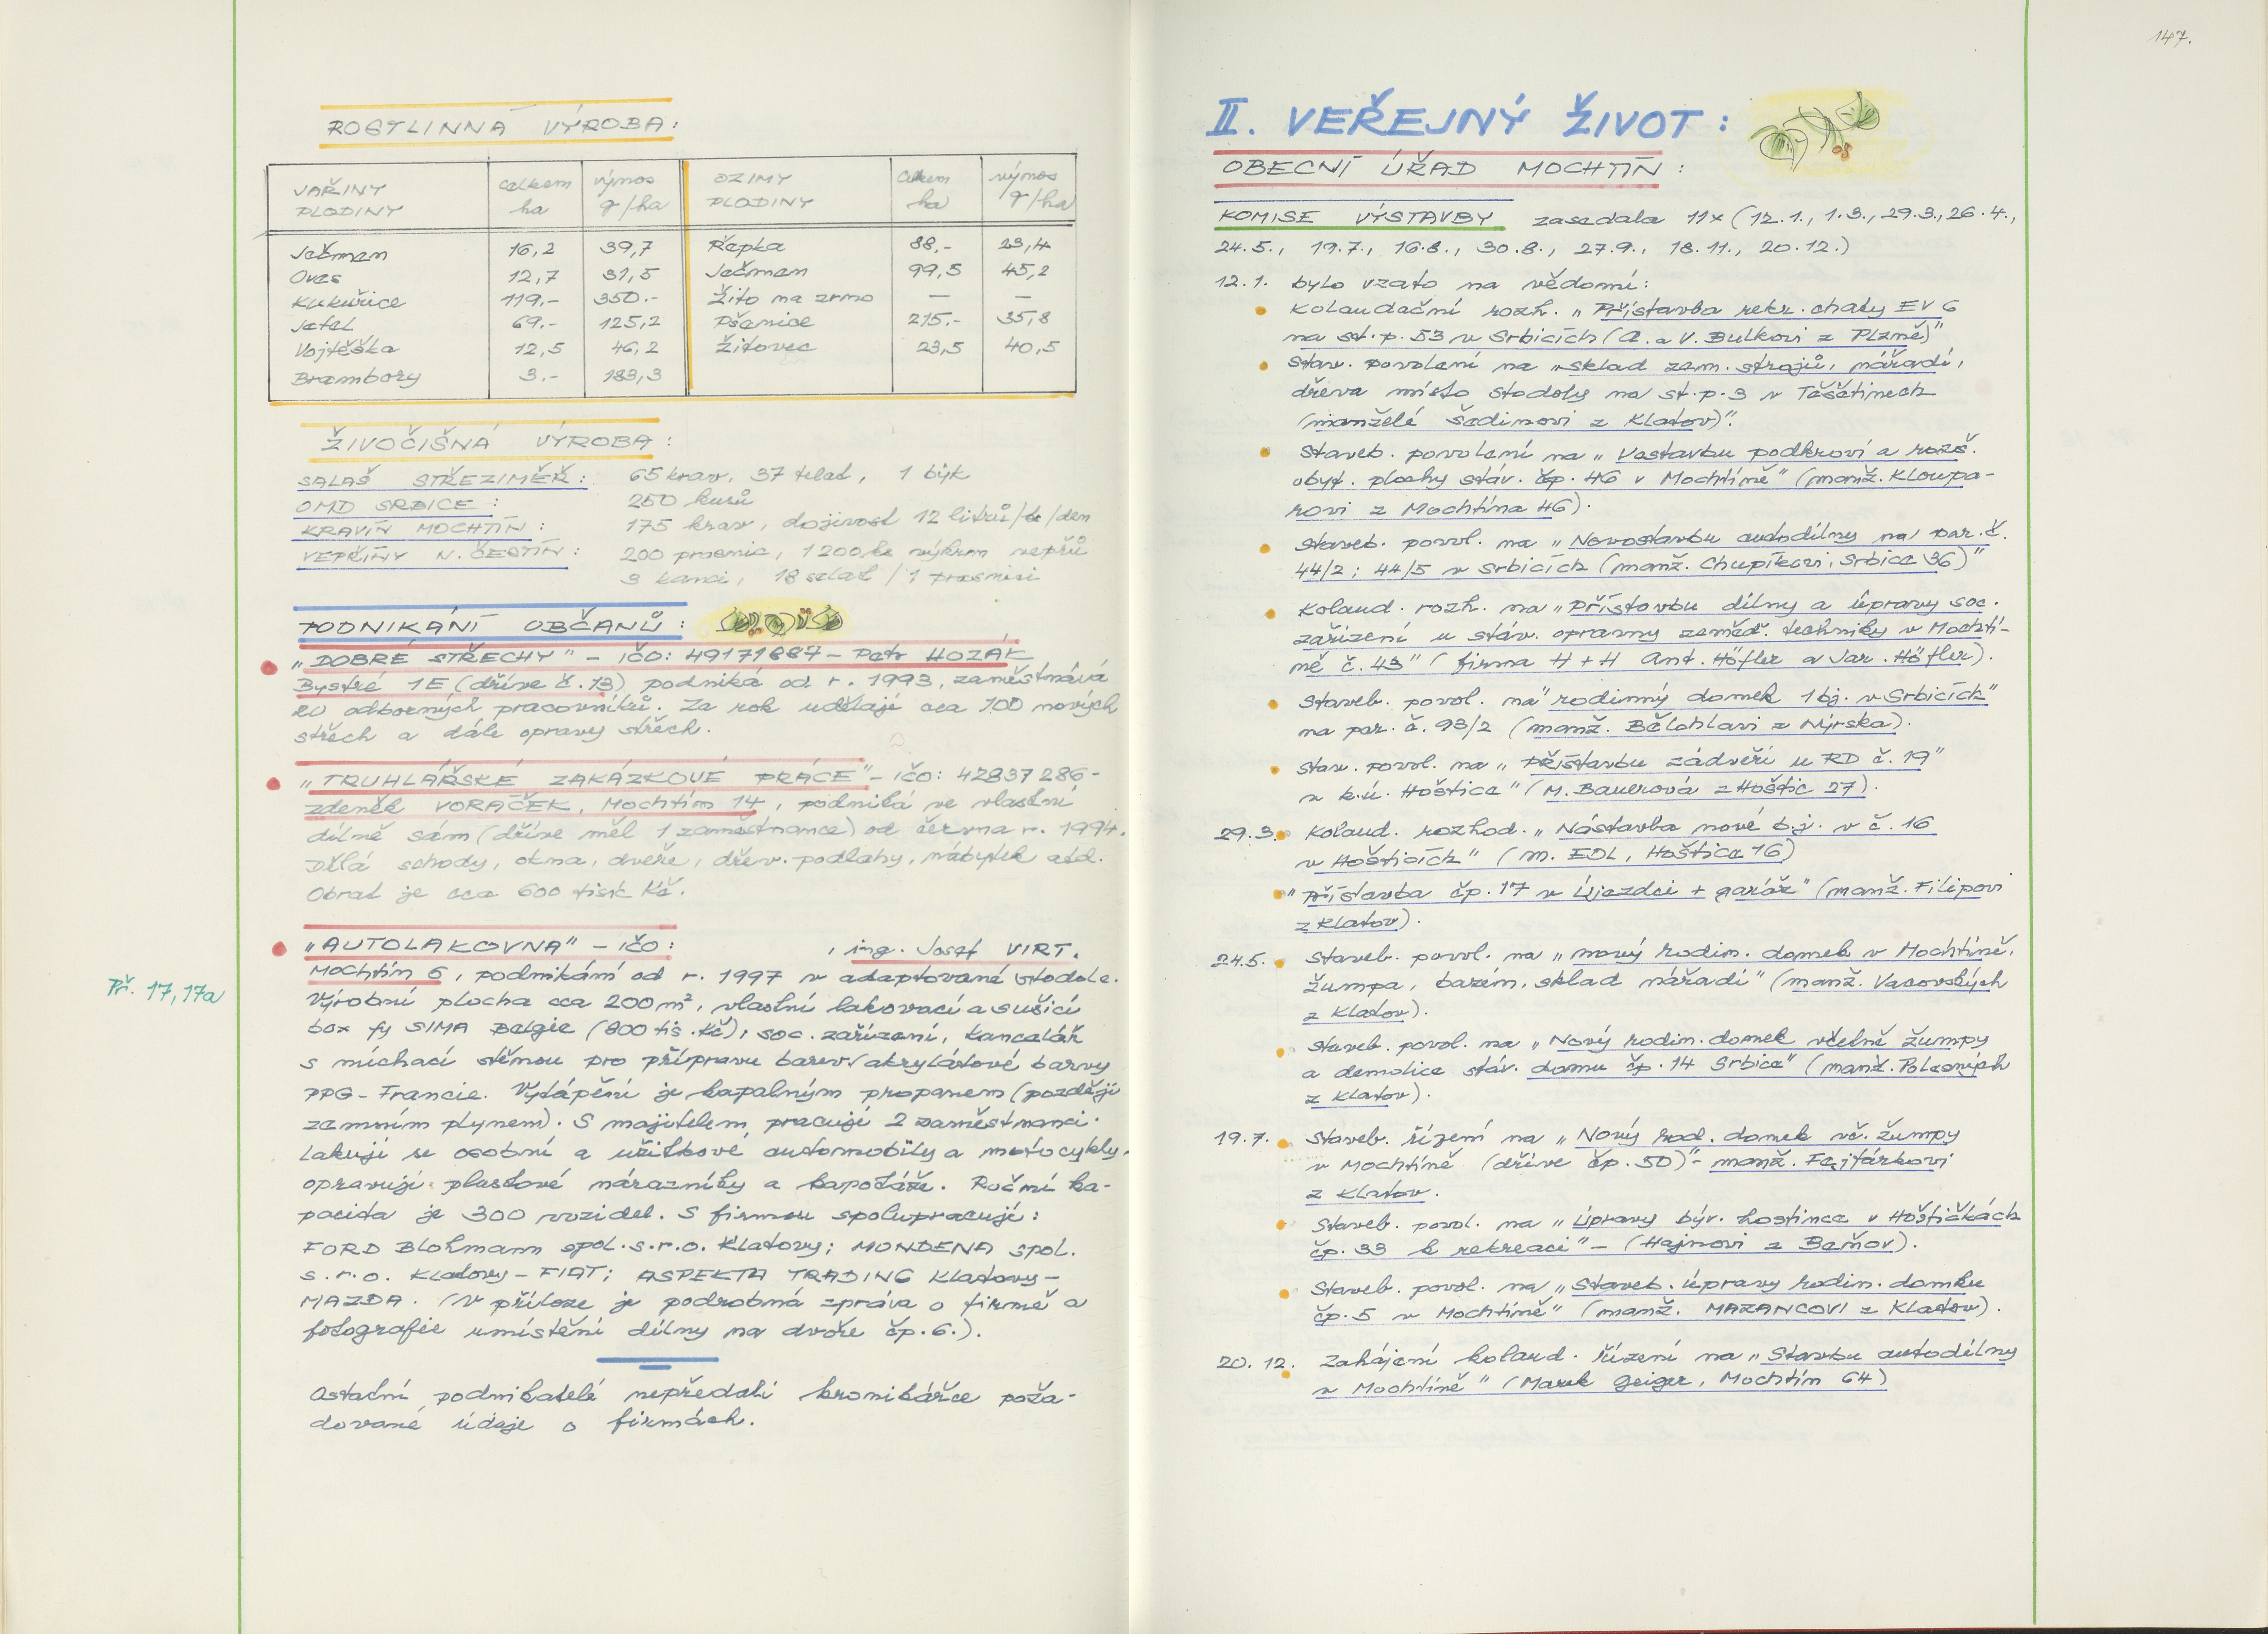 ROSTLINNÁ VÝROBA:
JAŘINY PLODINY | celkem ha | výnos q/ha | OZIMY PLODINY | Celkem ha | výnos q/ha
Ječmen 16,2 39,7 Řepka 88,- 23,4
Oves 12,7 31,5 Ječmen 99,5 45,2
Kukuřice 119,- 350.- Žito na zrno — —
Jetel 69.- 125,2 Pšenice 215.- 35,8
Vojtěška 12,5 46,2 Žitovec 23,5 40,5
Brambory 3.- 183,3
ŽIVOČIŠNÁ VÝROBA:
SALAŠ STŘEZIMĚŘ: 65 krav, 37 telat, 1 býk
OMD SRBICE: 250 kusů
KRAVÍN MOCHTÍN: 175 krav, dojivost 12 litrů/ks/den
VEPŘÍNY N. ČESTÍN: 200 prasnic, 1200 ks výkrm vepřů
3 kanci, 18 selat /1 prasnici
PODNIKÁNÍ OBČANŮ:
"DOBRÉ STŘECHY" - IČO: 49171887 - Petr HOZÁK
Bystré 1E (dříve č. 13) podniká od r. 1993, zaměstnává
20 odborných pracovníků. Za rok udělají cca 100 nových
střech a dále opravy střech.
"TRUHLÁŘSKÉ ZAKÁZKOVÉ PRÁCE" - IČO: 42837286 -
Zdeněk VORÁČEK, Mochtín 14, podniká ve vlastní
dílně sám (dříve měl 1 zaměstnance) od června r. 1994.
Dělá schody, okna, dveře, dřev. podlahy, nábytek atd.
Obrat je cca 600 tisíc Kč.
"AUTOLAKOVNA" - IČO: , ing. Josef VIRT.
Mochtín 6, podnikání od r. 1997 v adaptované stodole.
Výrobní plocha cca 200 m², vlastní lakovací a sušicí
box fy SIMA Belgie (800 tis. Kč), soc. zařízení, kancelář
s míchací stěnou pro přípravu barev (akrylátové barvy
PPG - Francie. Vytápění je kapalným propanem (později
zemním plynem). S majitelem pracují 2 zaměstnanci.
Lakují se osobní a užitkové automobily a motocykly,
opravují plastové nárazníky a kapotáže. Roční ka-
pacita je 300 vozidel. S firmou spolupracují:
FORD Blohmann spol. s.r.o. Klatovy; MONDENA spol.
s.r.o. Klatovy - FIAT; ASPEKTA TRADING Klatovy -
MAZDA. (V příloze je podrobná zpráva o firmě a
fotografie umístění dílny na dvoře čp. 6.).
Př. 17, 17a
Ostatní podnikatelé nepředali kronikářce poža-
dované údaje o firmách.
147.
II. VEŘEJNÝ ŽIVOT:
OBECNÍ ÚŘAD MOCHTÍN:
KOMISE VÝSTAVBY zasedala 11x (12.1., 1.3., 29.3., 26.4.,
24.5., 19.7., 16.8., 30.8., 27.9., 18.11., 20.12.)
12.1. bylo vzato na vědomí:
Kolaudační rozh. "Přístavba rekr. chaty EV 6
na st. p. 53 v Srbicích (A. a V. Bulkovi z Plzně)"
Stav. povolení na "sklad zem. strojů, nářadí,
dřeva místo stodoly na st. p. 3 v Těšetinech
(manželé Šedinovi z Klatov)".
Staveb. povolení na "Vestavbu podkroví a rozš.
obyt. plochy stáv. čp. 46 v Mochtíně" (manž. Kloupa-
rovi z Mochtína 46).
Staveb. povol. na "Novostavbu autodílny na par. č.
44/2; 44/5 v Srbicích (manž. Chupíkovi, Srbice 36)"
Kolaud. rozh. na "Přístavbu dílny a úpravy soc.
zařízení u stáv. opravny zeměd. techniky v Mochtí-
ně č. 43" (firma H + H Ant. Höfler a Jar. Höfler).
Staveb. povol. na "rodinný domek 1 bj. v Srbicích"
na par. č. 93/2 (manž. Bělohlavi z Nýrska).
Stav. povol. na "Přístavbu zádveří u RD č. 19"
v k.ú. Hoštice" (M. Bauerová z Hoštic 27).
29.3. Kolaud. rozhod. "Nástavba nové b.j. v č. 16
v Hošticích" (M. EDL, Hoštice 16)
"Přístavba čp. 17 v Újezdci + garáž" (manž. Filipovi
z Klatov).
24.5. Staveb. povol. na "nový rodin. domek v Mochtíně,
žumpa, bazén, sklad nářadí" (manž. Vacovských
z Klatov).
Staveb. povol. na "Nový rodin. domek včetně žumpy
a demolice stáv. domu čp. 14 Srbice" (manž. Polesných
z Klatov).
19.7. Staveb. řízení na "Nový rod. domek vč. žumpy
v Mochtíně (dříve čp. 50)" - manž. Fajtárkovi
z Klatov.
Staveb. povol. na "Úpravy býv. hostince v Hoštičkách
čp. 33 k rekreaci" - (Hajnovi z Beňov).
Staveb. povol. na "Staveb. úpravy rodin. domku
čp. 5 v Mochtíně" (manž. MAZANCOVI z Klatov).
20. 12. Zahájení kolaud. řízení na "Stavbu autodílny
v Mochtíně" (Marek Geiger, Mochtín 64)